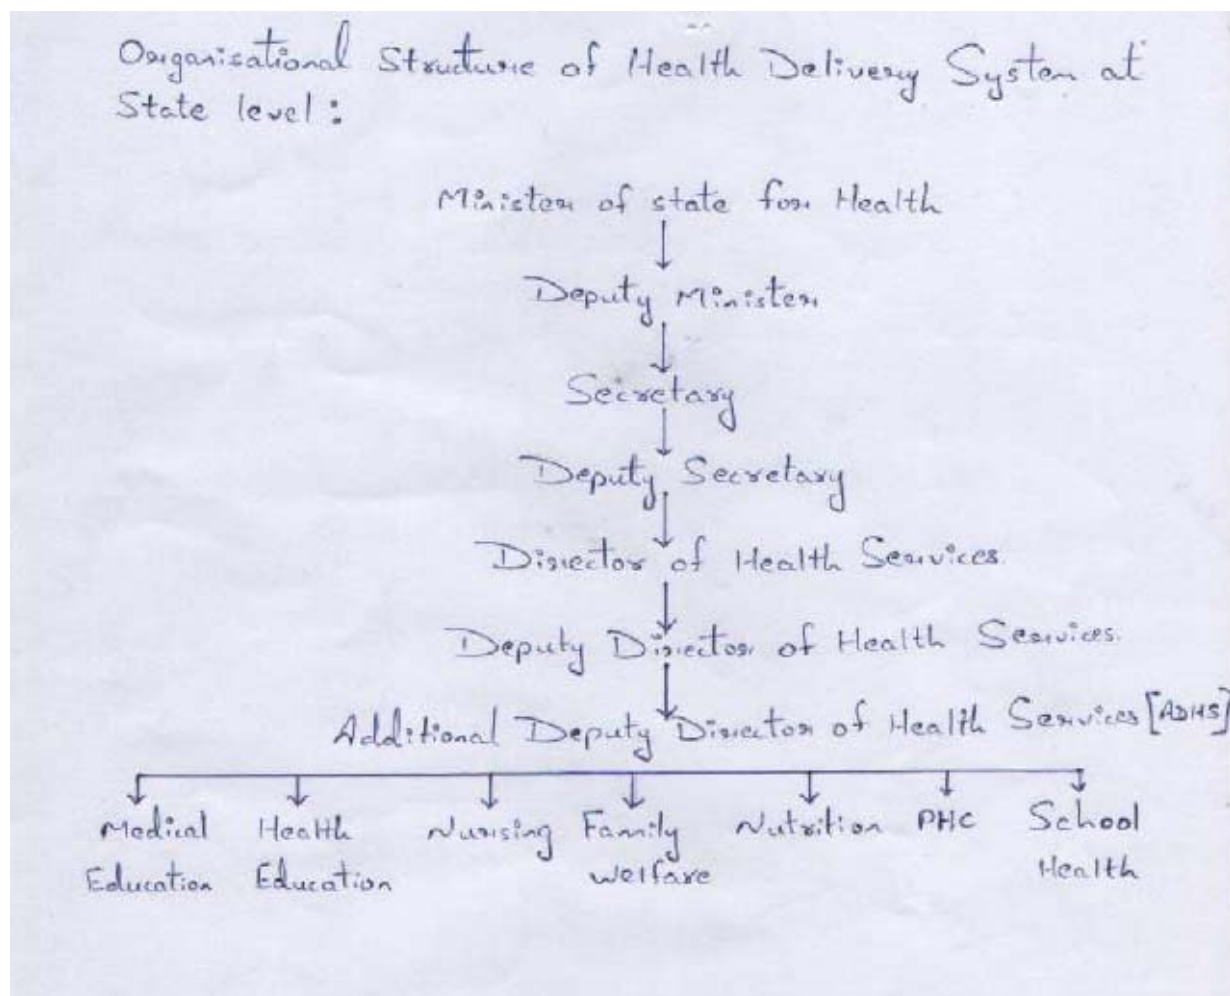 Organisational Structure of Health Delivery System at
State level :
Minister of state for Health
Deputy Minister
Secretary
Deputy Secretary
Director of Health Services
Deputy Director of Health Services.
Additional Deputy Director of Health Services [ADHS]
Medical Health Nursing Family Nutrition PHC School
Education Education welfare Health